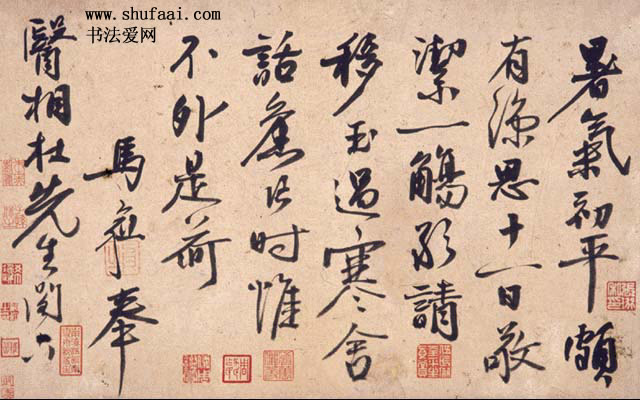 www.shufaai.com
书法爱网
暑氣初平頗
有涼思十一日敬
潔一觴敢請
移玉過寒舍
話舊片时惟
不外是荷
馬琬奉
醫相杜先生閣下